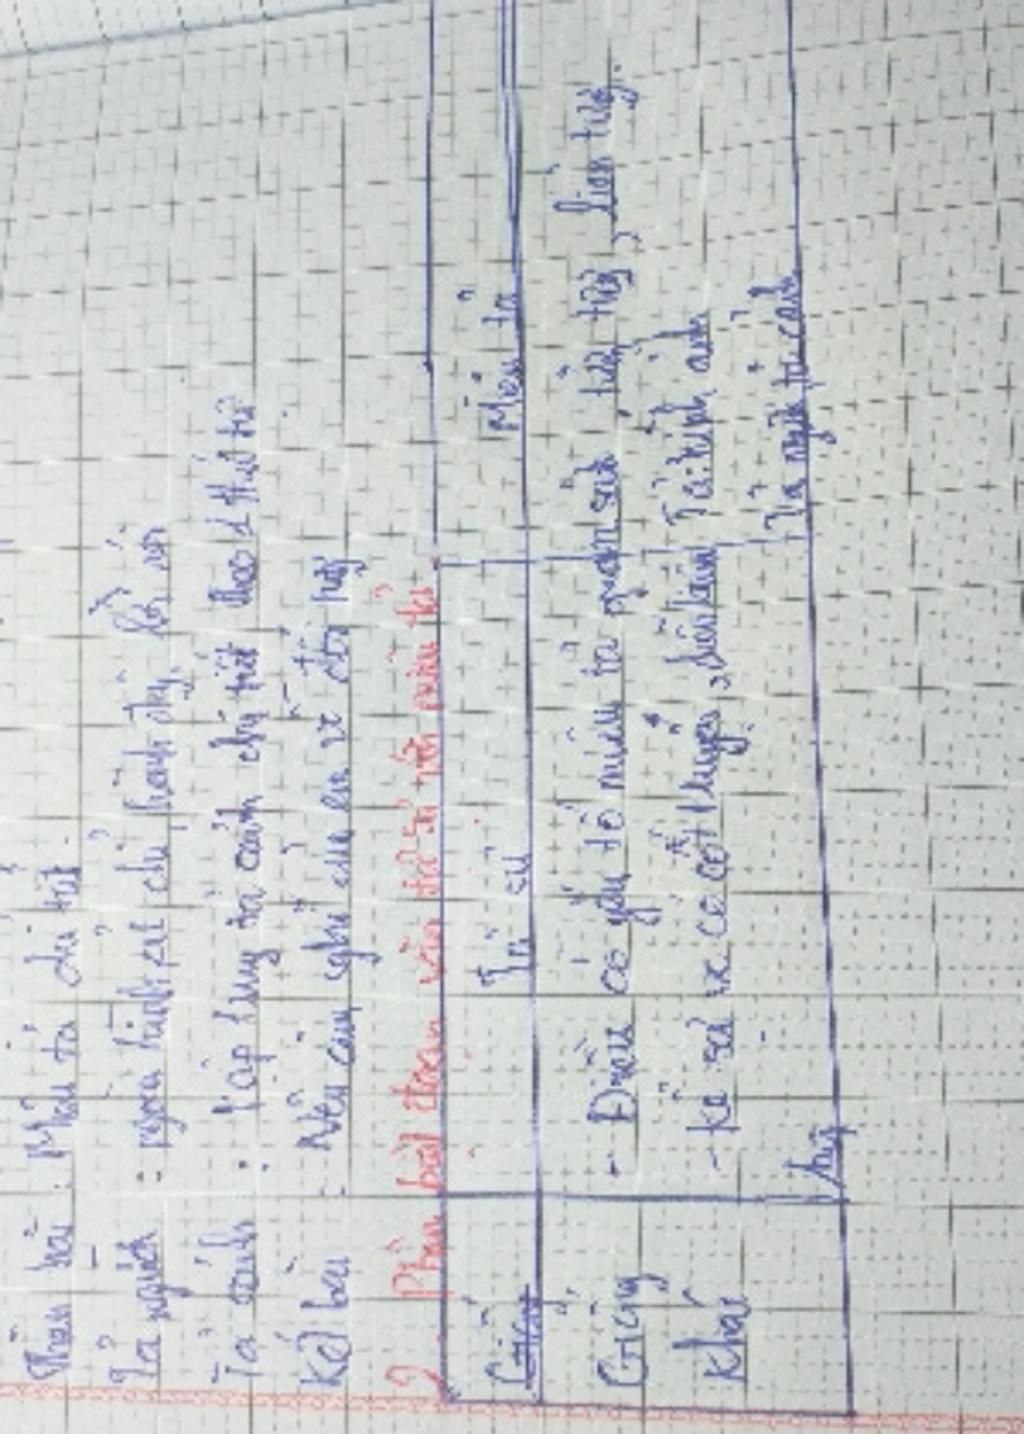 Thân bài : Miêu tả chi tiết
Tả người : ngoại hình, cử chỉ, hành động, lời nói
Tả cảnh : Tập trung tả cảnh chi tiết theo 1 thứ tự
Kết bài : Nêu cảm nghĩ của em về đối tượng
2 Phân biệt đoạn văn tự sự với miêu tả
Tự sự Miêu tả
Giống - Đều có yếu tố miêu tả quan sát tưởng tượng, liên tưởng.
Khác - Kể sự việc có cốt truyện, diễn biến Tả hình ảnh
Tả người tả cảnh